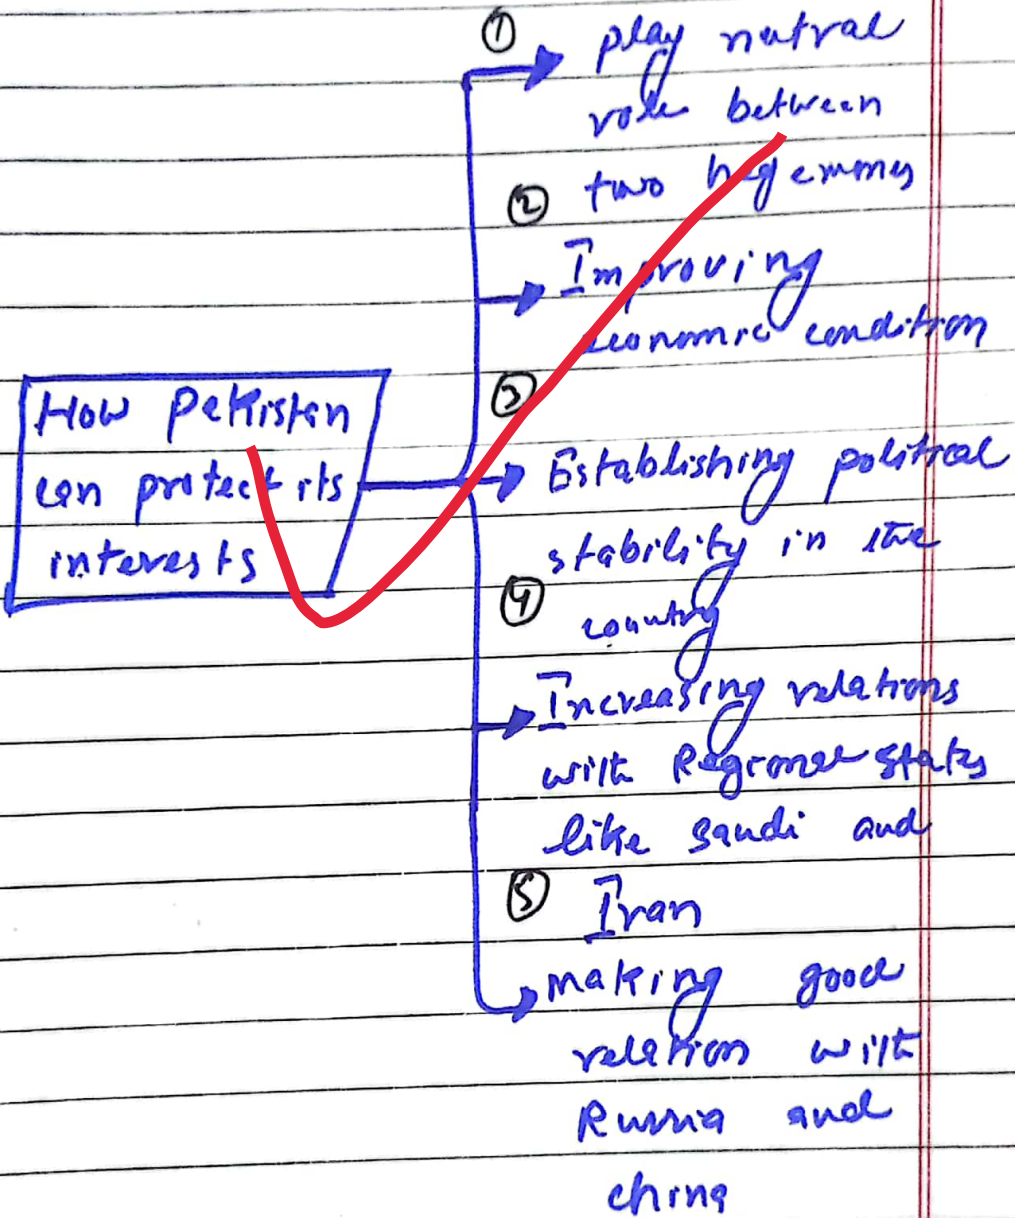 How Pakistan
can protect its
interests
①
play nutral
role between
② two hegemony
Improving
economic condition
③
Establishing political
stability in the
④ country
Increasing relations
with Regional states
like saudi and
⑤ Iran
making good
relation with
Russia and
china